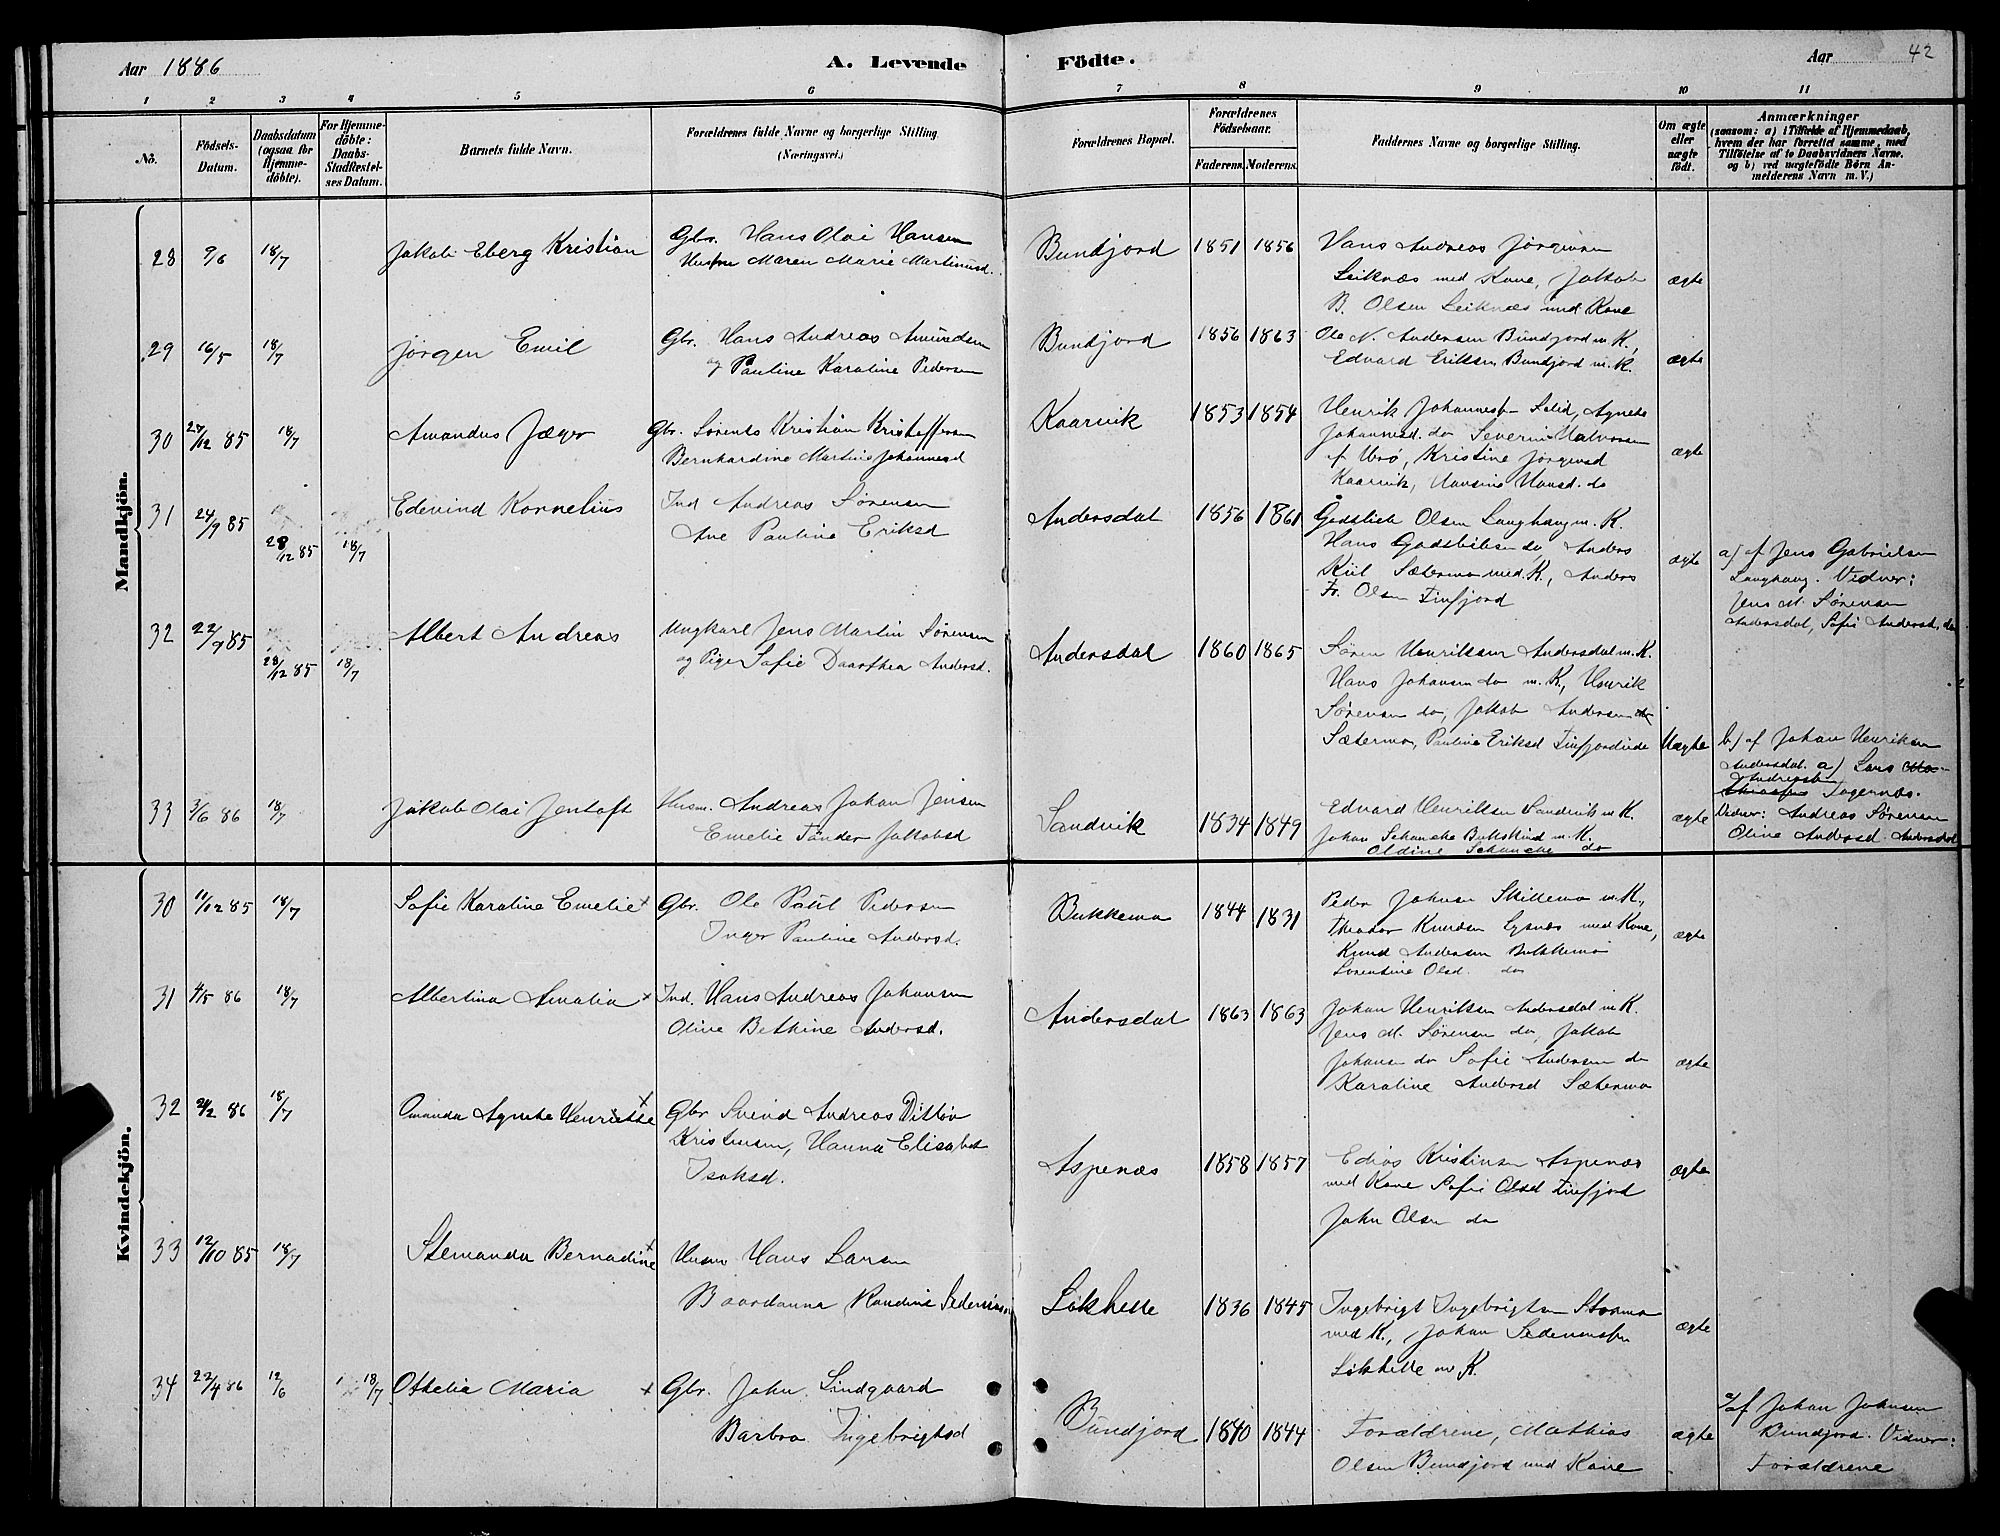 Aar 1886
A. Levende
Födte.
Aar
42
1 2 3 4 5 6 7 8 9 10 11
No.
Födsels-
Datum.
Daabsdatum
(ogsaa for
Hjemme-
döbte).
For Hjemme-
döbte:
Daabs-
Stadfæstel-
ses Datum.
Barnets fulde Navn.
Forældrenes fulde Navne og borgerlige Stilling.
(Næringsvei.)
Forældrenes Bopæl.
Forældrenes
Födselsaar.
Faderens. Moderens.
Faddernes Navne og borgerlige Stilling.
Om ægte
eller
uægte
født.
Anmærkninger
(saasom: a) i Tilfælde af Hjemmedaab,
hvem der har forrettet samme, med
Tilföielse af to Daabsvidners Navne.
og b) ved uægtefödte Börn An-
melderens Navn m. V.)
Mandkjön.
28 9/6 18/7 Jakob Eberg Kristian
Gbr. Hans Olai Hansen
Hustru Maren Marie Martinusd.
Bundjord 1851 1856
Hans Andreas Jørgensen
Leiknæs med Kone, Jakob
B. Olsen Leiknæs med Kone
ægte
29 16/5 18/7 Jørgen Emil
Gbr. Hans Andreas Amundsen
og Pauline Karoline Pedersen
Bundjord 1856 1863
Ole N. Andersen Bundjord m. K.,
Edvard Eriksen Bundjord m. K.
ægte
30 27/12 85 18/7 Amandus Jæger
Gbr. Sørents Kristian Kristoffersen
Bernhardine Martine Johannesd
Kaarvik 1853 1854
Henrik Johannes Solid, Agneta
Johannesd. do Severin Halvorsen
Kristine Jørgensd
Kaarvik, Hansine Hansd. do
ægte
31 24/9 85 28/12 85 18/7 Edevind Kornelius
Ind Andreas Sørensen
Ane Pauline Eriksd
Andersdal 1856 1861
Godtlieb Olsen Langhaug m. K.
Hans Godtliebsen do, Anders
Kiil Sætermo med K., Anders
Fr. Olsen Tinfjord
ægte
a) af Jens Gabrielsen
Langhaug. Vidner:
Jens M. Sørensen
Andersdal, Sofie Andersd. do
32 22/9 85 28/12 85 18/7 Albert Andreas
Ungkarl Jens Martin Sørensen
og Pige Sofie Daarthea Andersd.
Andersdal 1860 1865
Søren Henriksen Andersdal m. K.
Hans Johansen do m. K., Henrik
Sørensen do, Jakob Andersen do
Sætermo, Pauline Eriksd Tinfjord
Uægte
b) af Johan Henriksen
Andersdal. a) Lars
Andreas
Vidner: Andreas Sørensen
Oline Andersd Andersdal
33 3/6 86 18/7 Jakob Olai Jentoft
Husm. Andreas Johan Jensen
Emelie Tønder Jakobsd
Sandvik 1834 1849
Edvard Henriksen Sandvik m. K.
Johan Schancke Bukskind m. K.
Oldine Schancke do
ægte
Kvindekjön.
30 11/12 85 18/7 Sofie Karoline Emelie +
Gbr. Ole Paul Pedersen
Inger Pauline Andersd.
Bukkemo 1844 1831
Peder Johnsen Skillemo m. K.,
Theodor Knudsen Lysnæs med Kone,
Knud Andersen Bukkemo
Sørensine Olsd. do
ægte
31 4/5 86 18/7 Albertina Amalia +
Ind. Hans Andreas Johansen
Oline Betkine Andersd.
Andersdal 1863 1863
Johan Henriksen Andersdal m K.
Jens M. Sørensen do, Jakob
Johansen do Sofie Andersen do
Karoline Andersd Sætermo
ægte
32 2/2 86 18/7 Amanda Agnete Henriette +
Gbr Svend Andreas Ditløv
Kristensen, Hanna Elisabet
Isaksd.
Aspenæs 1858 1857
Edias Kristensen Aspenæs
med Kone Sofie Olsd Tinfjord
John Olsen do
ægte
33 12/10 85 18/7 Stemanda Bernadine +
Husm Hans Larsen
Baardanna Randine Sedeniusen
Løkhelle 1836 1845
Ingebrigt Ingebrigtsen Stormo
med K., Johan Sedeniussen
Løkhelle m K.
ægte
34 22/4 86 12/6 18/7 Othelie Maria +
Gbr. John Lindgaard
Barbro Ingebrigtsd
Bundjord 1840 1844
Forældrene, Mathias
Olsen Bundjord med Kone
ægte
a/ af Johan Johnsen
Bundjord. Vidner:
Forældrene